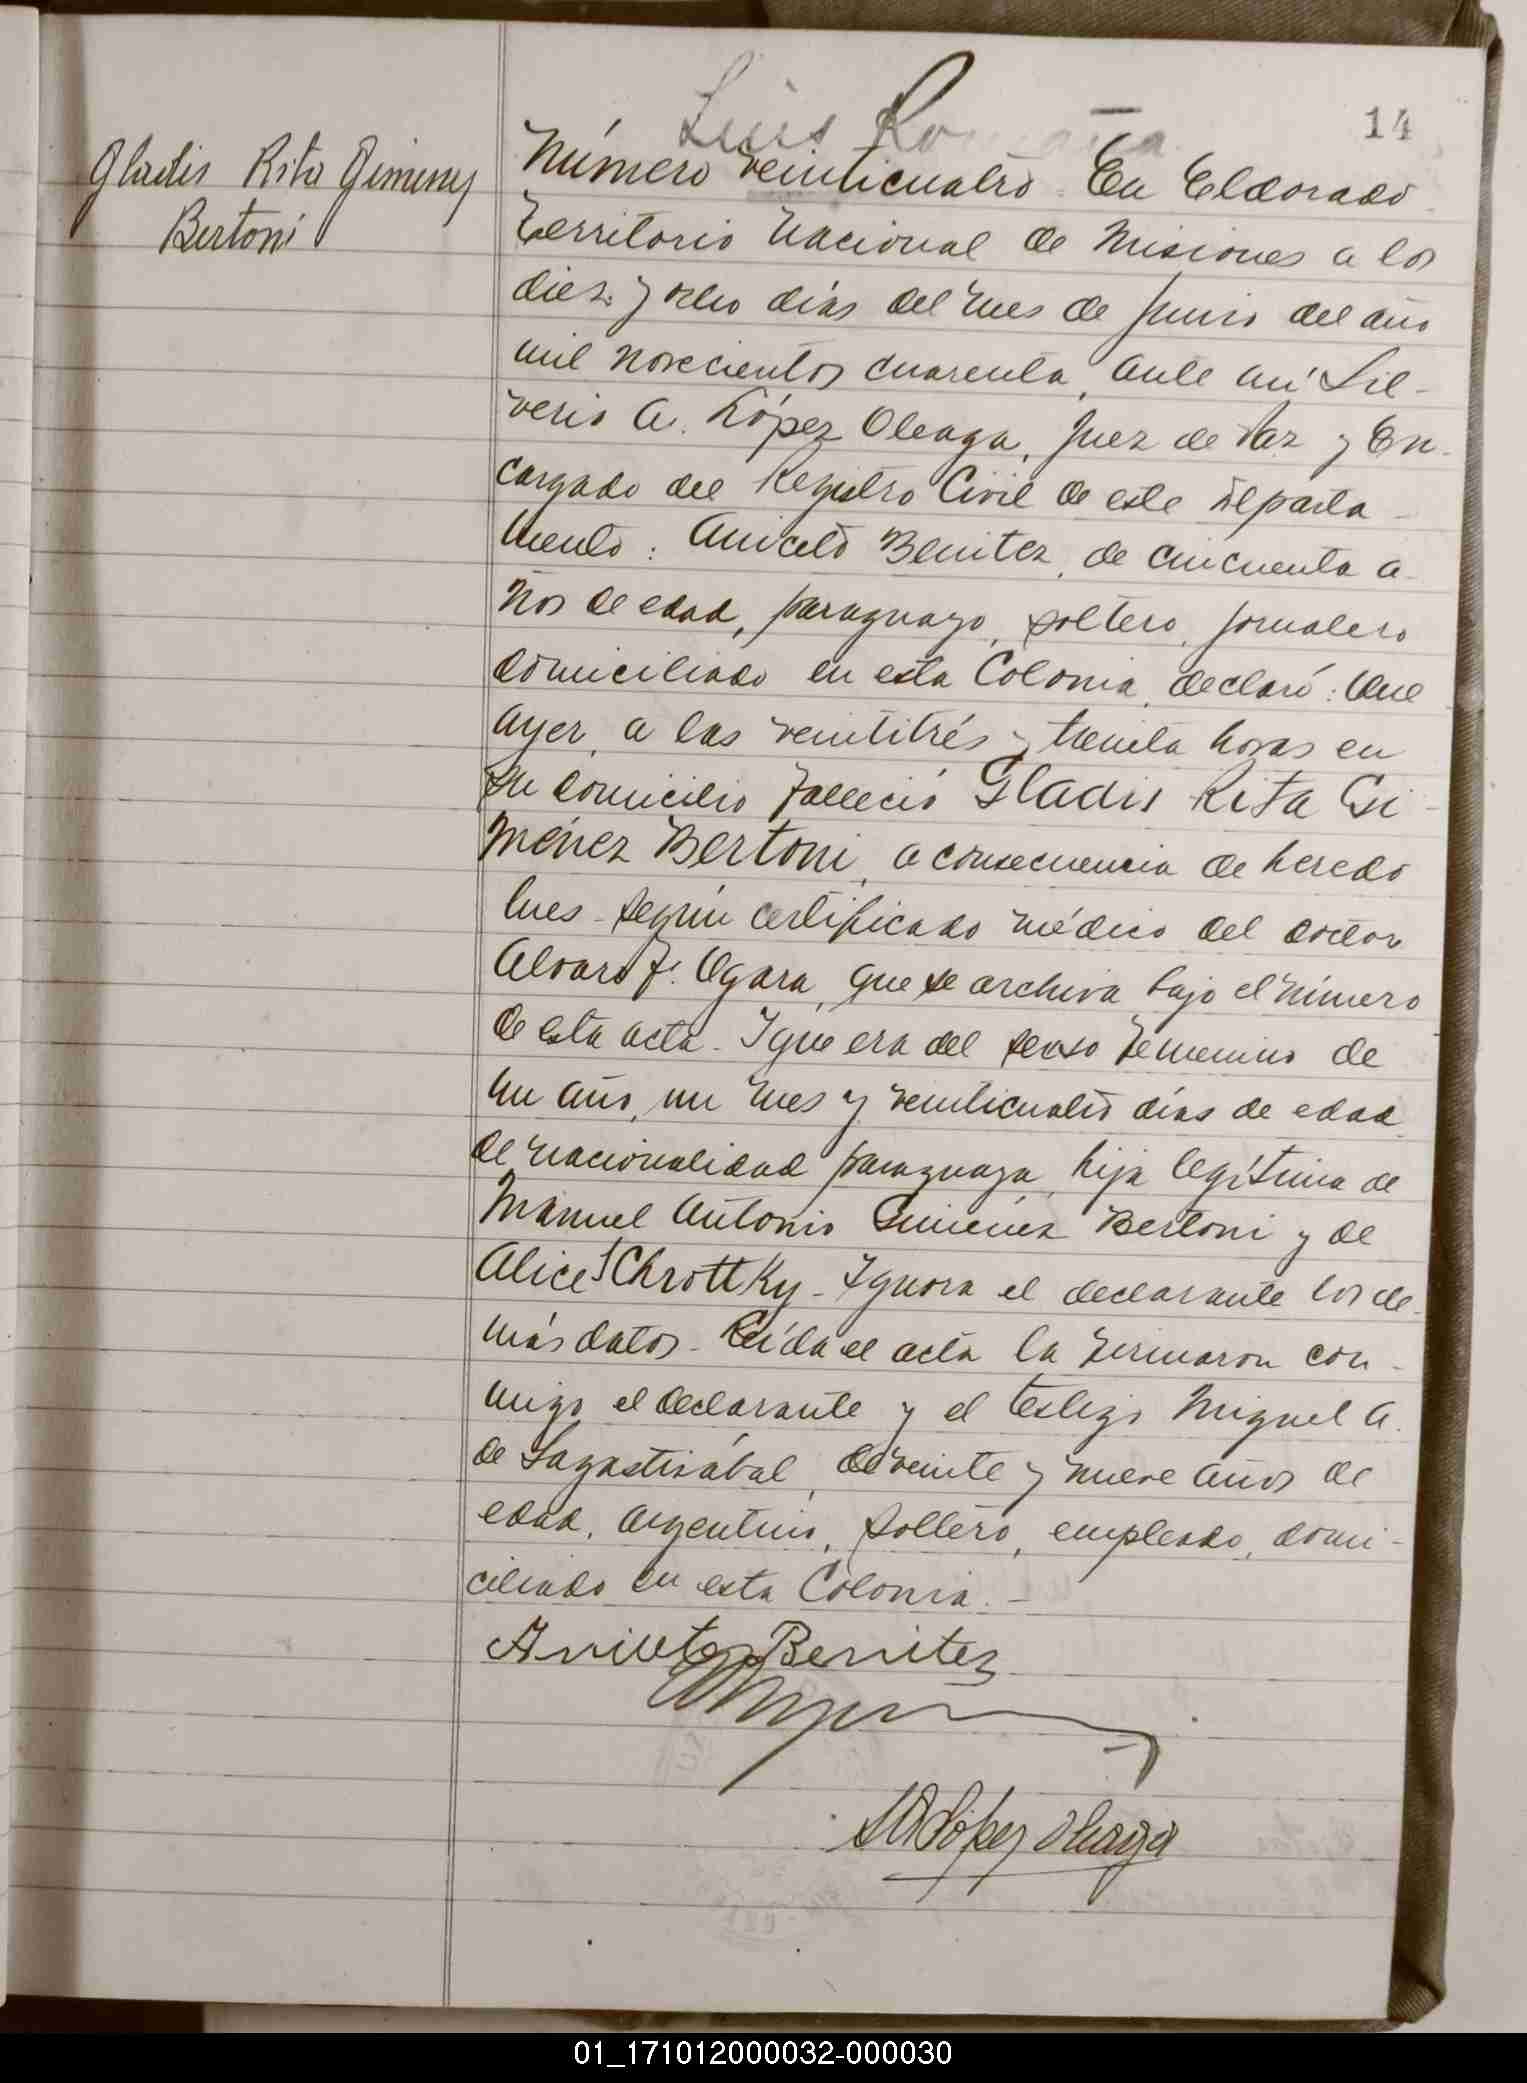 14
Luis Ro
Gladis Rita Gimenez
Bertoni
Número veinticuatro. En Eldorado
Territorio Nacional de Misiones a los
diez y ocho días del mes de Junio del año
mil novecientos cuarenta, ante mí Sil-
verio A. López Oleaga, Juez de Paz y En-
cargado del Registro Civil de este Departa-
mento: Aniceto Benitez, de cincuenta a-
ños de edad, paraguayo, soltero, jornalero
domiciliado en esta Colonia, declaró: Que
ayer, a las veintitrés y treinta horas en
su domicilio falleció Gladis Rita Gi-
ménez Bertoni, a consecuencia de heredo
lues - según certificado médico del doctor
Alvaro F. Ogara, que se archiva bajo el número
de esta acta - Y que era del sexo femenino de
un año, un mes y veinticuatro días de edad
de nacionalidad paraguaya, hija legítima de
Manuel Antonio Giménez Bertoni y de
Alice Schrottky - Ignora el declarante los de-
más datos - Leída el acta la firmaron con-
migo el declarante y el testigo Miguel A.
de Lagastizábal, de veinte y nueve años de
edad, argentino, soltero, empleado, domi-
ciliado en esta Colonia. -
Aniceto Benitez
SALópez Oleaga
01_171012000032-000030